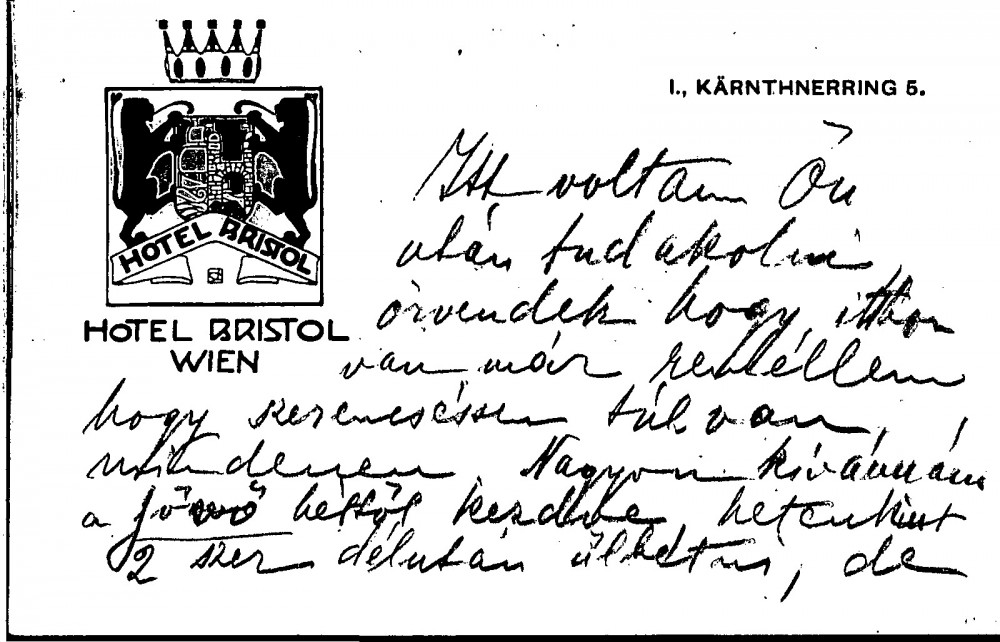 I., KÄRNTHNERRING 5.
HOTEL BRISTOL
HOTEL BRISTOL
WIEN
Itt voltam Ön
után tudakolni
örvendek hogy itthon
van már remélem
hogy szerencsésen túl van
mindenen Nagyon kívánnám
a jövő héttől kezdve hetenkint
2 szer délután ülhetni, de